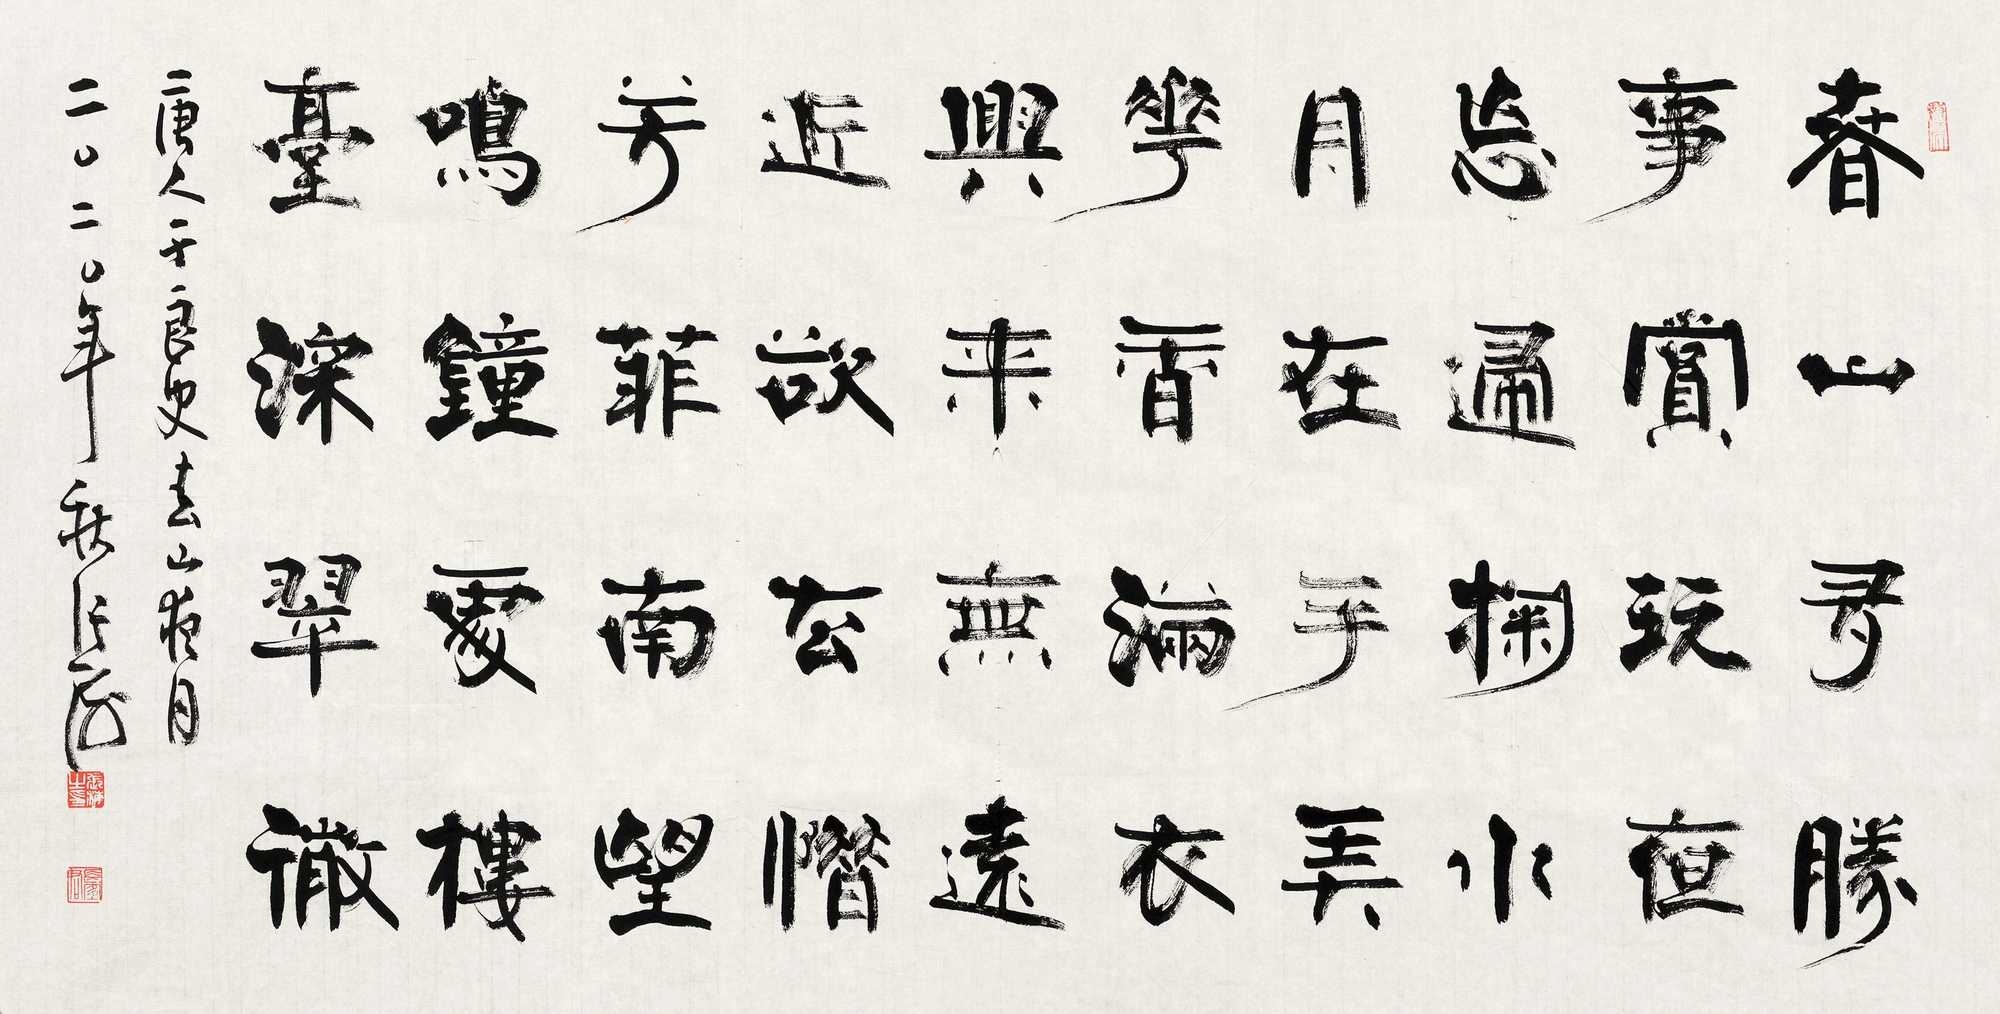 春山多勝
事賞玩夜
忘歸掬水
月在手弄
華香滿衣
興来無遠
近欲去惜
芳菲南望
鳴鐘處樓
臺深翠微
唐人于良史春山夜月
二〇二〇年秋张